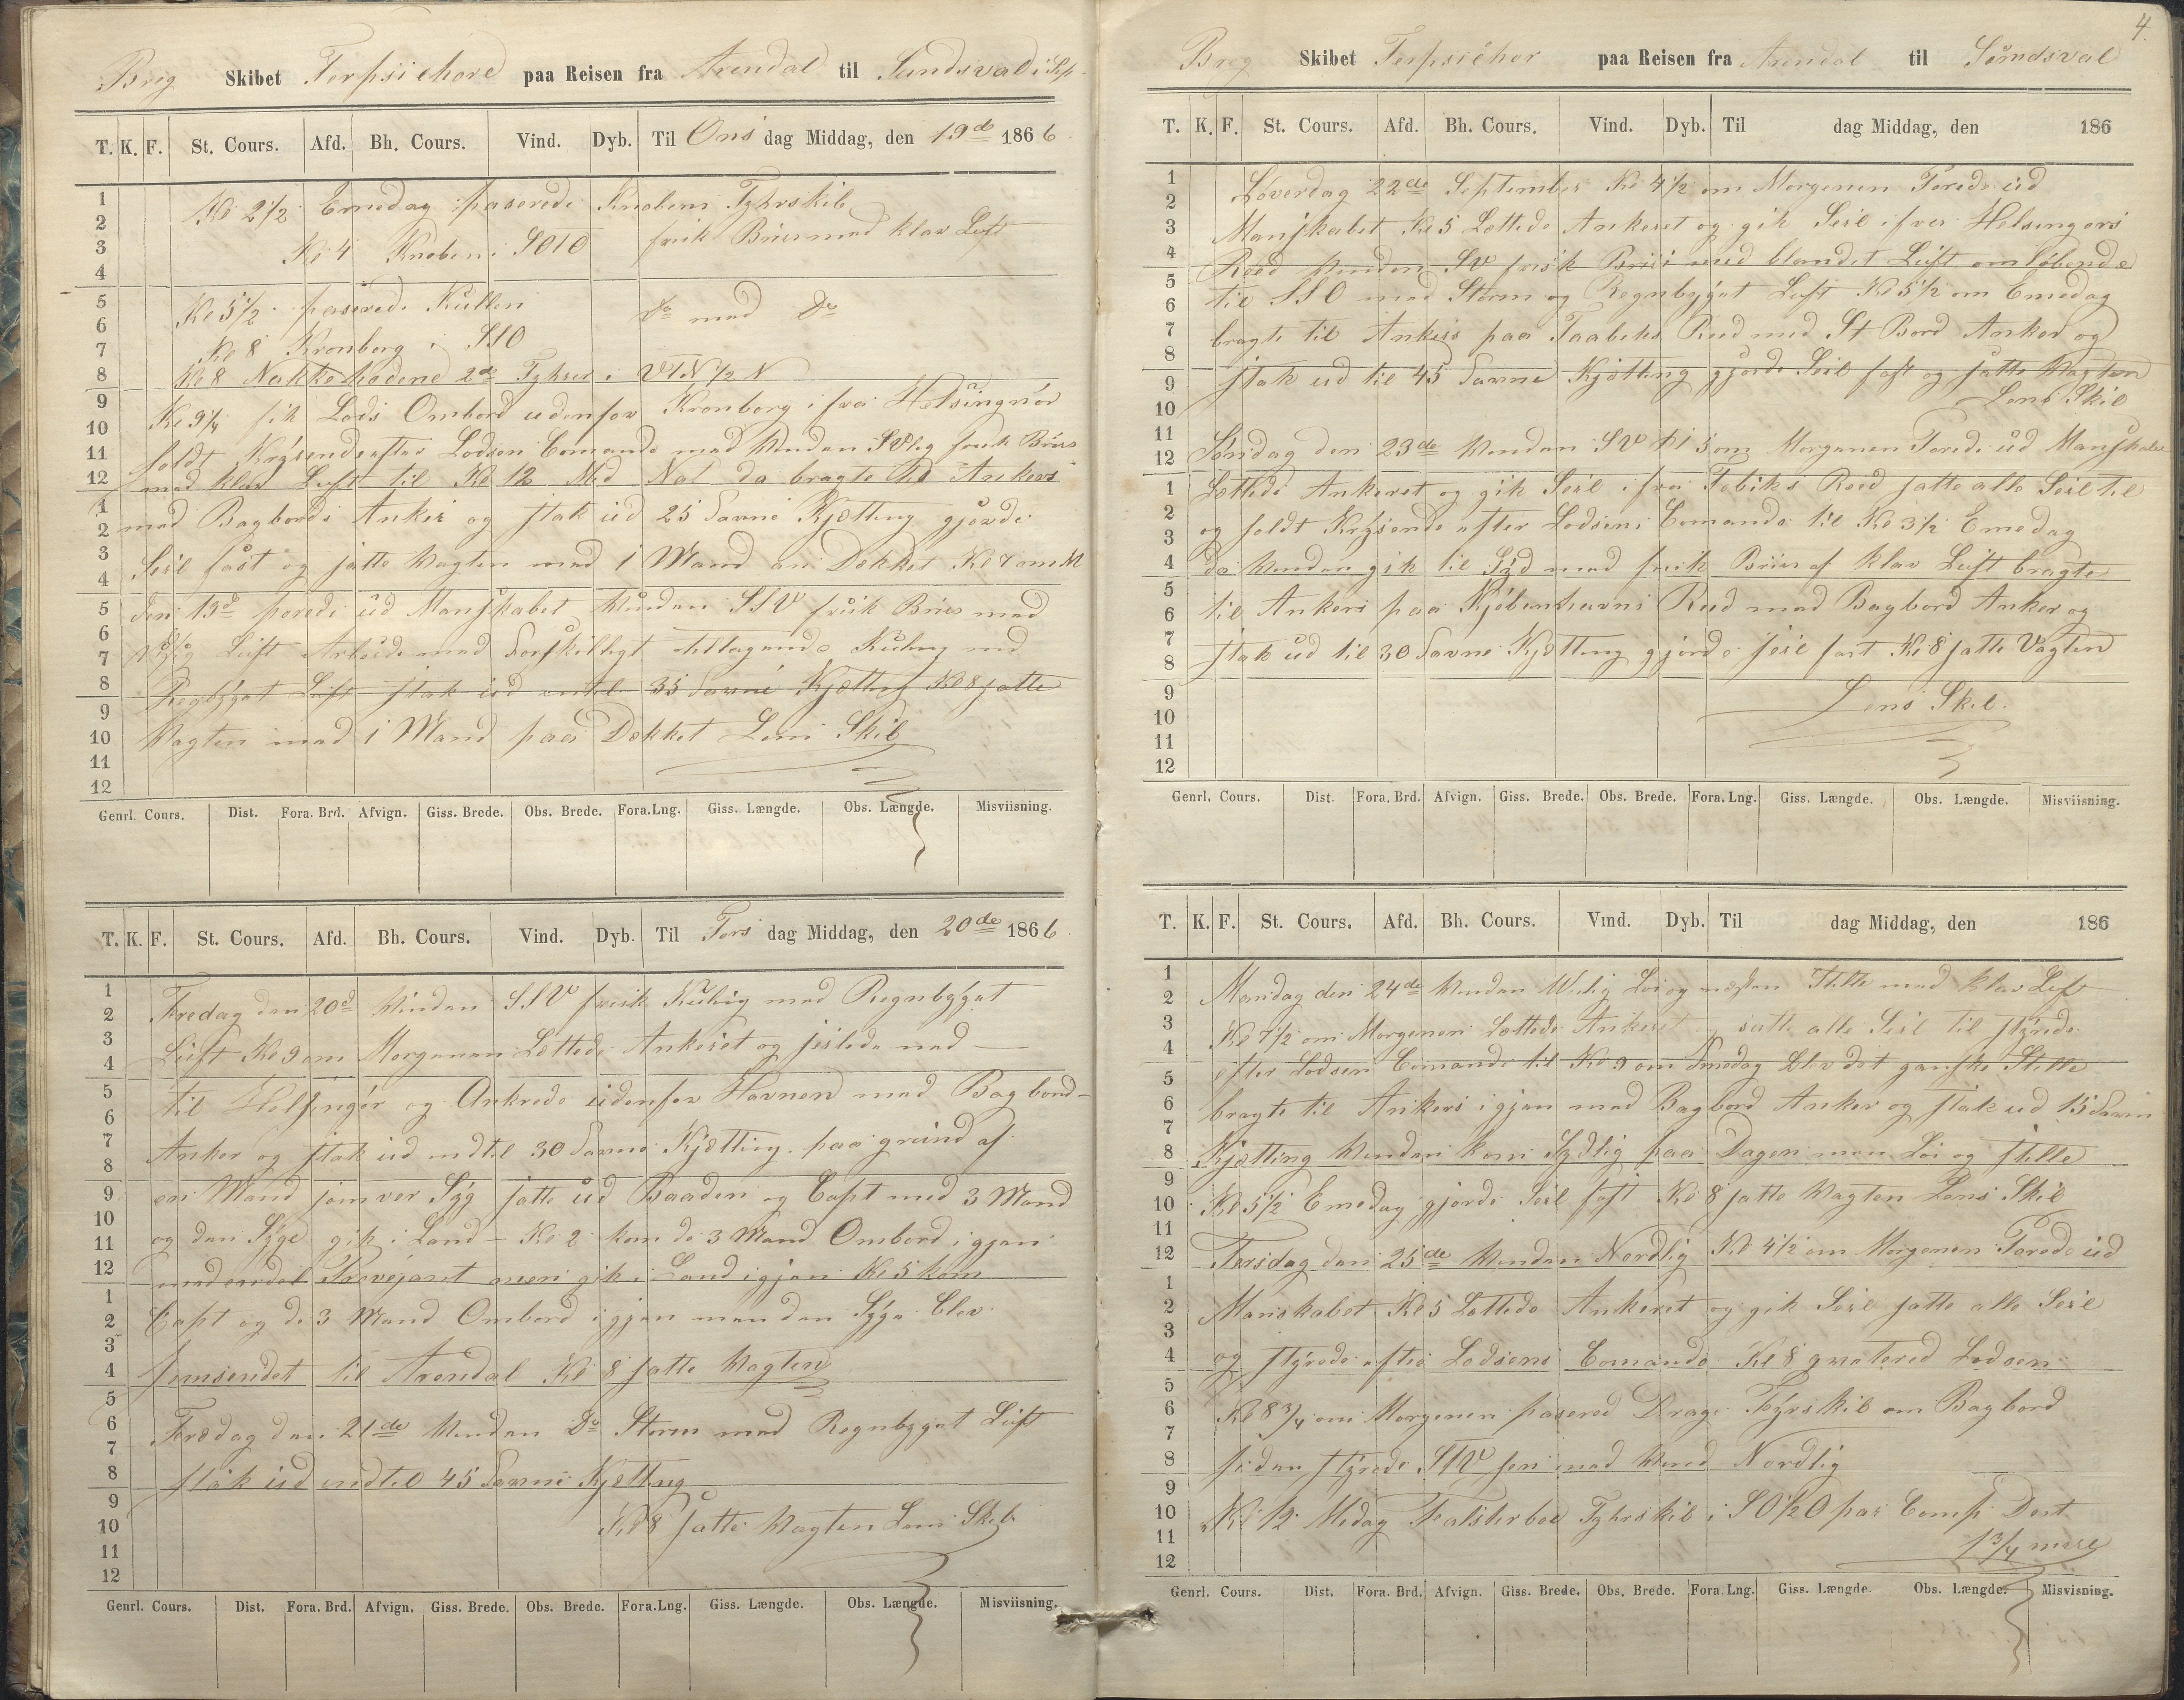 Brig Skibet Terpsichore paa Reisen fra Arendal til Sundsval i Sep.
T. K. F. St. Cours. Afd. Bh. Cours. Vind. Dyb. Til Ons dag Middag, den 19de 1866.
1
2
3
4
5
6
7
8
9
10
11
12
1
2
3
4
5
6
7
8
9
10
11
12
Kl 2 1/2 Emedag paserede Knoben Fyhrskib
Kl 4 Knoben i SOtO frisk Briis med klar Luft
Kl 5 1/2 paserede Kullen Do med Do
Kl 8 Kronborg i SSO
Kl 8 Nakkehodene 2de Fyhrer i VTN 1/2 N
Kl 9 1/4 fik Lods Ombord udenfor Kronborg ifra Helsingnör
holdt Krysende efter Lodsen Comando med Vinden SVlig frisk Briis
med klar Luft til Kl 12 Mid Nat da bragte til Ankers
med Bagbords Anker og stak ud 25 Favne Kjætting gjorde
Seil fast og satte Vagten med 1 Mand an Dekket Kl 7 om M
den 19d purede ud Manskabet Vinden SSV frisk Briis med
Luft Arbeide med Forskilligt tiltagende Kuling med
Regbygat Luft stak ud indtil 35 Favne Kjætting Kl 8 satte
Vagten med 1 Mand paa Dekket Lens Skib
Genrl. Cours. Dist. Fora. Brd. Afvign. Giss. Brede. Obs. Brede. Fora.Lng. Giss. Længde. Obs. Længde. Misviisning.
T. K. F. St. Cours. Afd. Bh. Cours. Vind. Dyb. Til Tors dag Middag, den 20de 1866.
1
2
3
4
5
6
7
8
9
10
11
12
1
2
3
4
5
6
7
8
9
10
11
12
Fredag den 20d Vinden SSV frisk Kuling med Regnbygat
Luft Kl 9 om Morgenen Lettede Ankeret og seilede ned
til Helsingör og Ankrede udenfor Havnen med Bagbord
Anker og stak ud indtil 30 Favne Kjætting paa grund af
en Mand som var Syg satte ud Baaden og Capt med 3 Mand
og den Syge gik i Land Kl 2 kom de 3 Mand Ombord igjen
med endel Provejant men gik i Land igjen Kl 5 kom
Capt og de 3 Mand Ombord igjen men den Syge blev
hjemsendet til Arendal Kl 8 satte Vagten
Fredag den 21de Vinden Do Storm med Regnbygat Luft
stak ud indtil 45 Favne Kjætting
Kl 8 satte Vagten Lens Skib
Genrl. Cours. Dist. Fora. Brd. Afvign. Giss. Brede. Obs. Brede. Fora.Lng. Giss. Længde. Obs. Længde. Misviisning.
4.
Brig Skibet Terpsichor paa Reisen fra Arendal til Sundsval
T. K. F. St. Cours. Afd. Bh. Cours. Vind. Dyb. Til dag Middag, den 186
1
2
3
4
5
6
7
8
9
10
11
12
1
2
3
4
5
6
7
8
9
10
11
12
Löverdag 22de September Kl 4 1/2 om Morgenen Porede ud
Manskabet Kl 5 Lettede Ankeret og gik Seil ifra Helsingörs
Reed Vinden SV frisk Briis med blandet Luft omløbende
til SSO med Storm og Regnbygat Luft Kl 5 1/2 om Emedag
bragte til Ankers paa Taabeks Reed med St Bord Anker og
stak ud til 45 Favne Kjætting gjorde Seil fast og satte Vagten
Lens Skib
Søndag den 23de Vinden SV Kl 5 om Morgenen Porede ud Manskabet
Lettede Ankeret og gik Seil ifra Tobiks Reed satte alle Seil til
og holdt Krysende efter Lodsens Comando til Kl 3 1/2 Emedag
da Vinden gik til Syd med frisk Briis af klar Luft bragte
til Ankers paa Kjöbenhavns Reed med Bagbord Anker og
stak ud til 30 Favne Kjætting gjorde seil fast Kl 8 satte Vagten
Lens Skib.
Genrl. Cours. Dist. Fora. Brd. Afvign. Giss. Brede. Obs. Brede. Fora.Lng. Giss. Længde. Obs. Længde. Misviisning.
T. K. F. St. Cours. Afd. Bh. Cours. Vind. Dyb. Til dag Middag, den 186
1
2
3
4
5
6
7
8
9
10
11
12
1
2
3
4
5
6
7
8
9
10
11
12
Mandag den 24de Vinden Vlig Löi og næsten Stille med klar Luft
Kl 7 1/2 om Morgenen Lettede Ankeret og satte alle Seil til styrede
efter Lodsen Comando til Kl 9 om Fmedag blev det ganske Stille
bragte til Ankers igjen med Bagbord Anker og stak ud 15 Favn
Kjætting Vinden kom Sydlig paa Dagen men Löi og stille
Kl 5 1/2 Emedag gjorde Seil fast Kl 8 satte Vagten Lens Skib
Tersdag den 25de Vinden Nordlig Kl 4 1/2 om Morgenen Porede ud
Manskabet Kl 5 Lettede Ankeret og gik Seil satte alle Seil
og styrede efter Lodsens Comando Kl 8 qvitered Lodsen
Kl 8 3/4 om Morgenen pasered Dragö Fyrskib om Bagbord
siden styrede med Vind Nordlig
Kl 12 Midag Falsterboe Fyhrskib i SO 1/2 O par Comp Dist
1 3/4 miil
Genrl. Cours. Dist. Fora. Brd. Afvign. Giss. Brede. Obs. Brede. Fora.Lng. Giss. Længde. Obs. Længde. Misvisning.